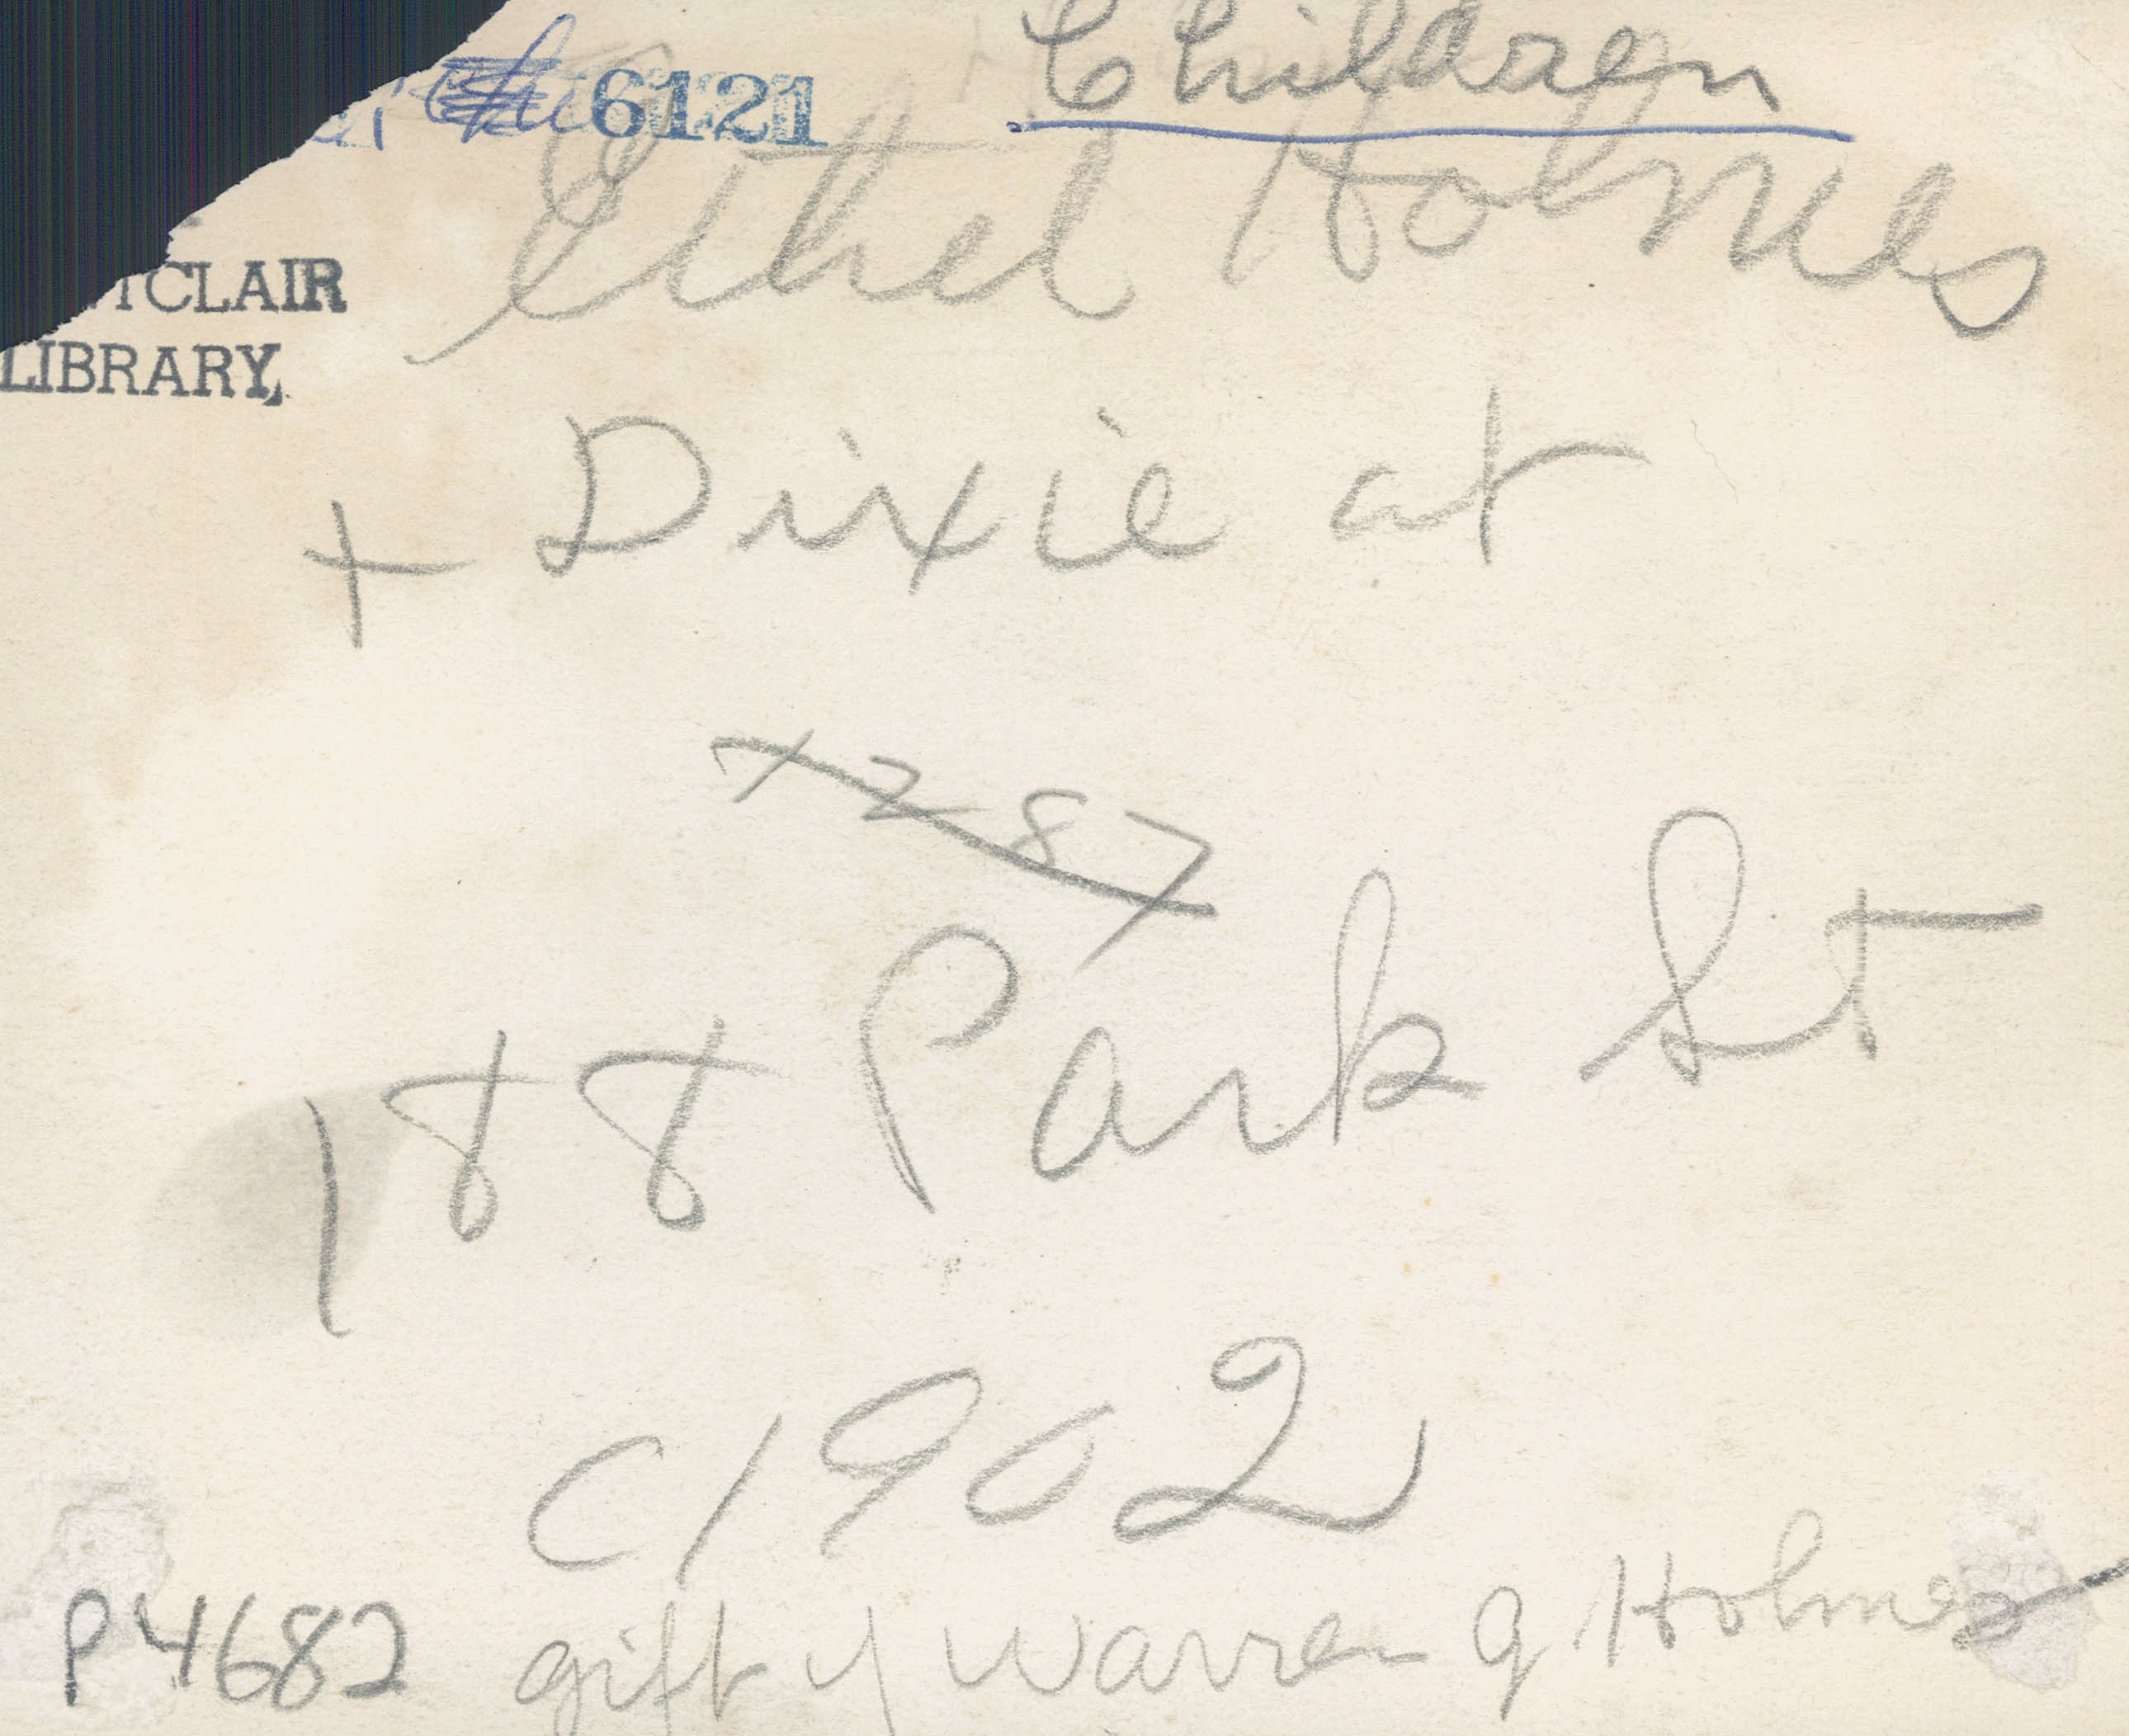 Children
6121
Ethel Holmes
TCLAIR
LIBRARY,
+ Dixie at
X287
188 Park St
C1902
P4682 gift of Warren G Holmes